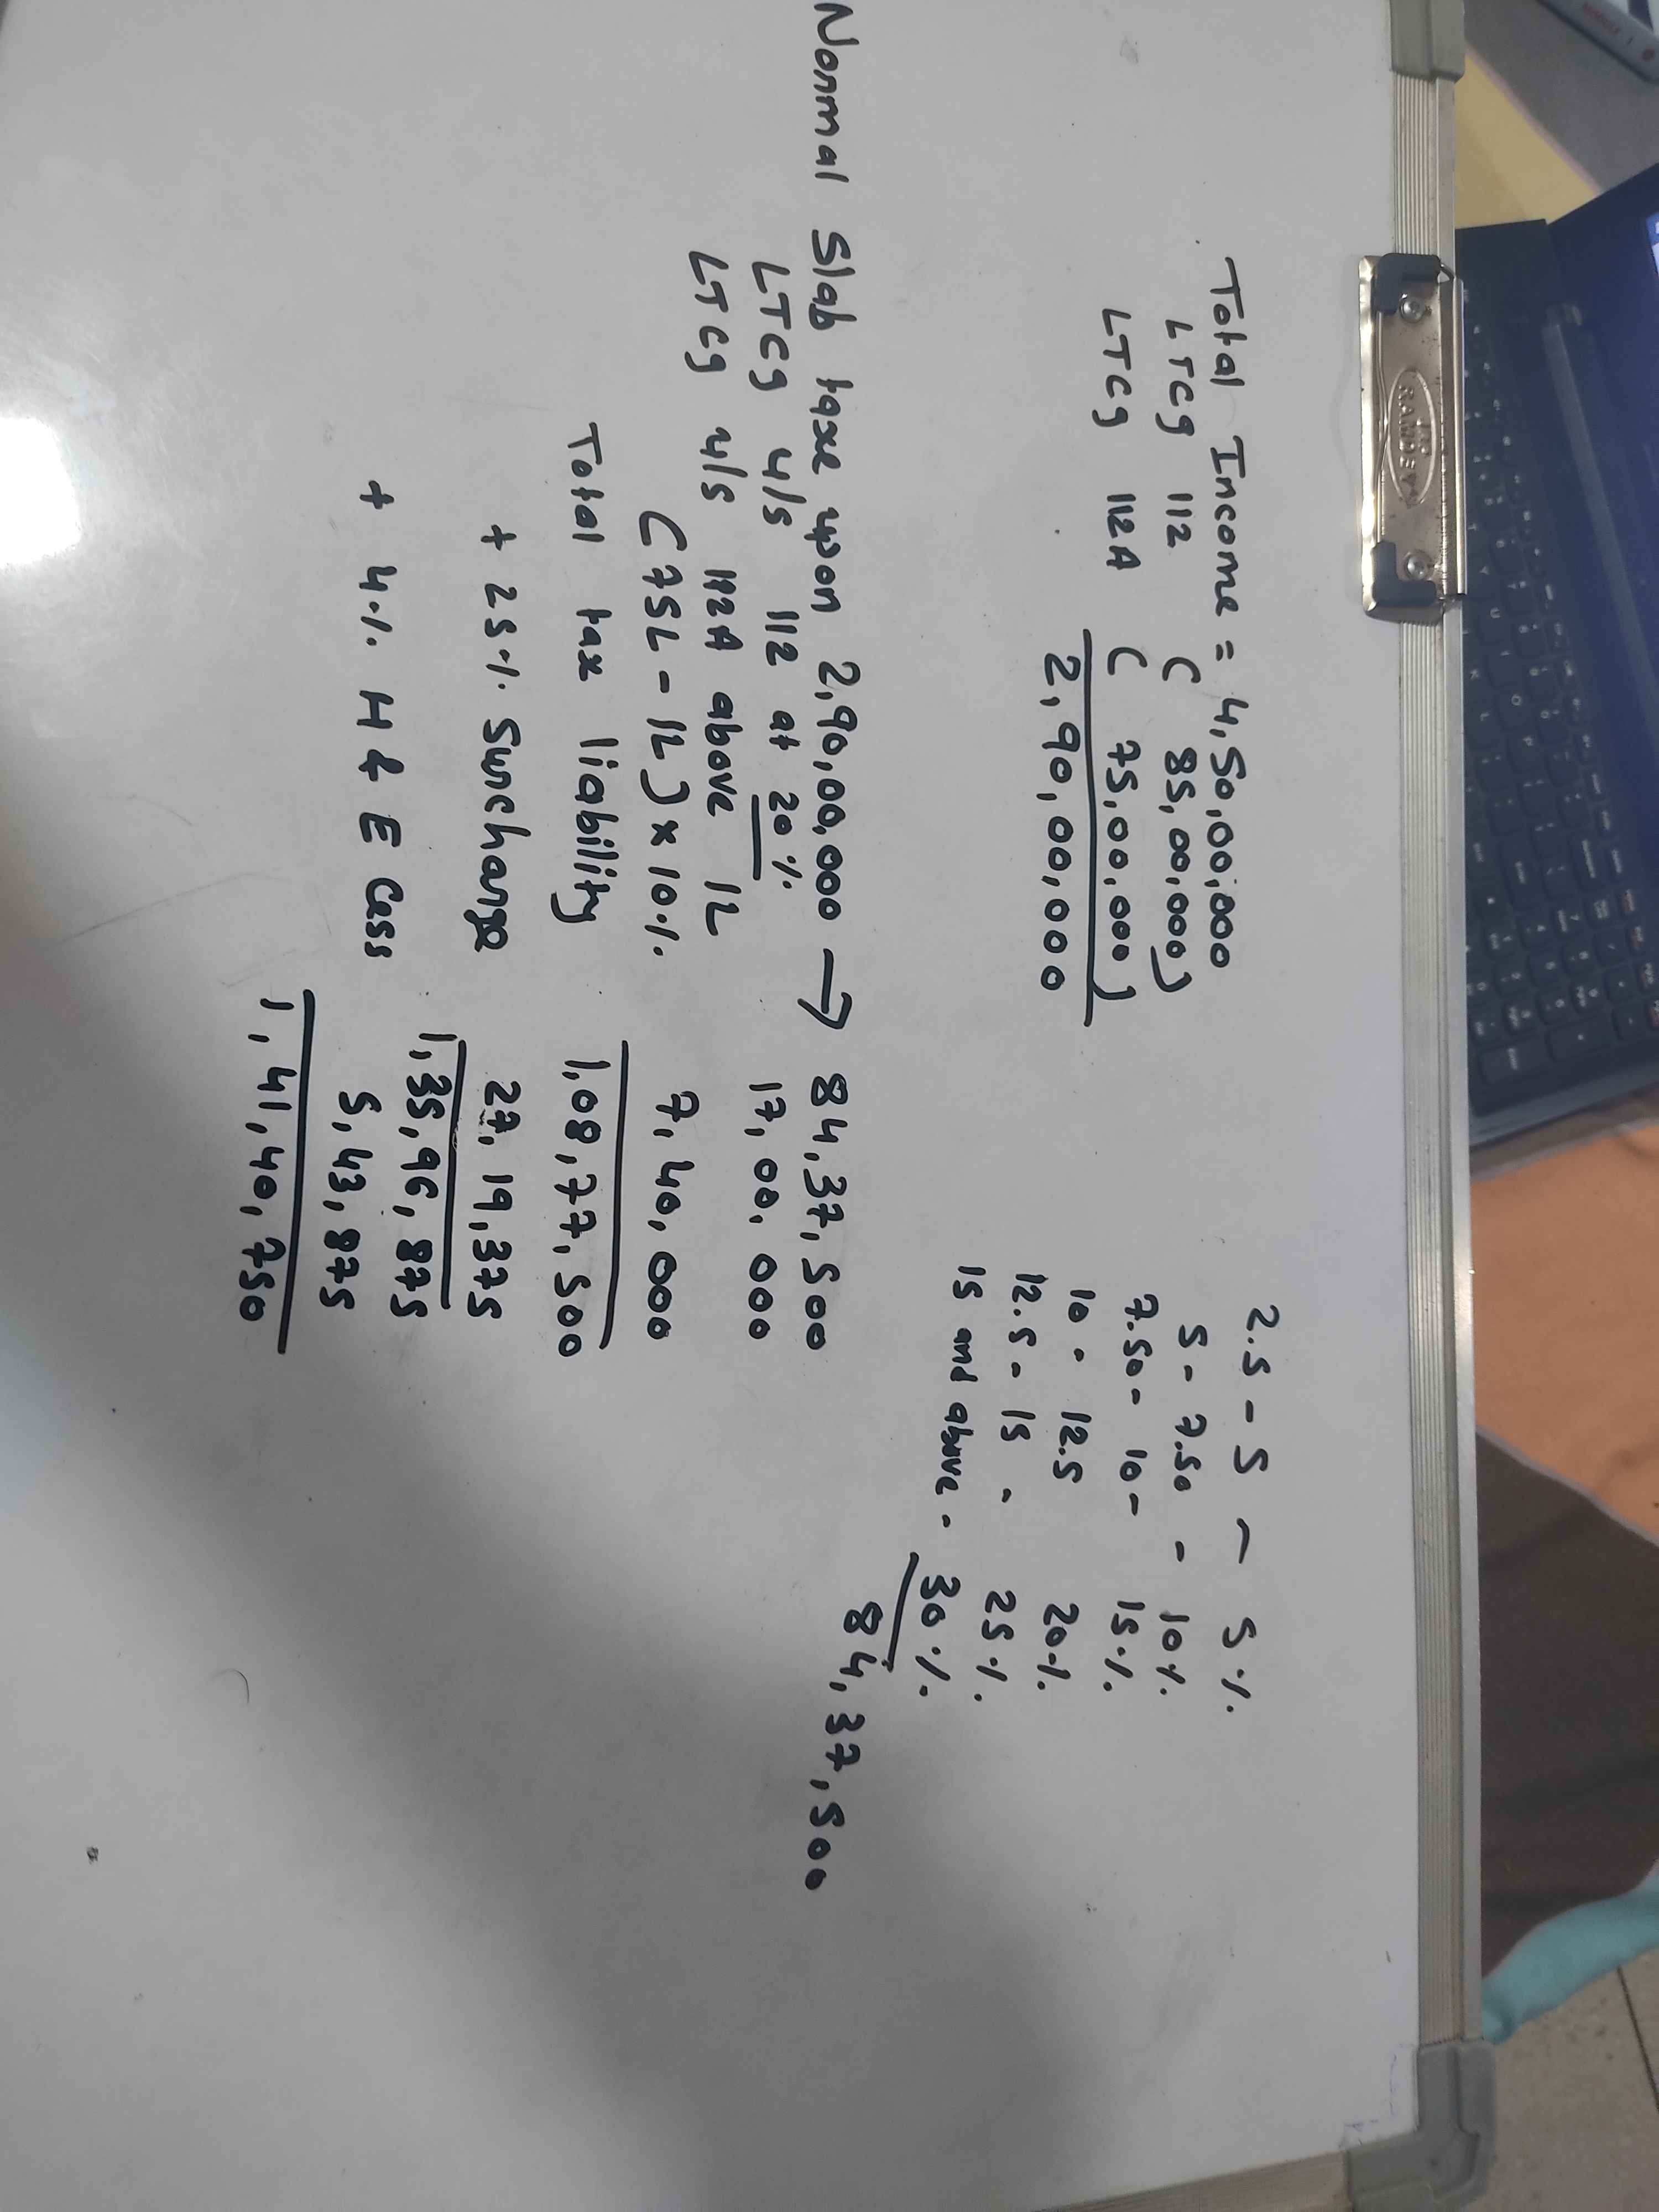 Total Income = 4,50,00,000
LTCg 112 ( 85,00,000)
LTCg 112A ( 75,00,000)
2,90,00,000
2.5 - 5 - 5%
5 - 7.50 - 10%
7.50 - 10 - 15%
10 - 12.5 20%
12.5 - 15 - 25%
15 and above - 30%
84,37,500
Normal Slab taxe upon 2,90,00,000 → 84,37,500
LTCg u/s 112 at 20% 17,00,000
LTCg u/s 112A above 1L
(75L - 1L) x 10% 7,40,000
Total tax liability 1,08,77,500
+ 25% Surcharge 27,19,375
1,35,96,875
+ 4% H & E Cess 5,43,875
1,41,40,750